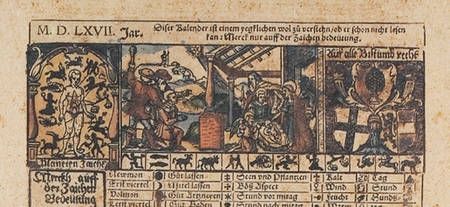 M. D. LXVII. Jar.
Diser Kalender ist einem yegklichen wol zu verstehn / ob er schon nicht lesen
kan: Merck nur auff der Zaichen bedeutung.
Auff alle Bistumb recht
Merck auff
der Zaichen
Bedeütung
Newmon Gůt lassen Seen vnd Pflantzen Kalt Tag
Erst viertel Mittel lassen Böß Aspect Wind Stund
Volmon Gůt Artzneien Stund vor mitag feücht
Gůt Baden Stund nach mittag